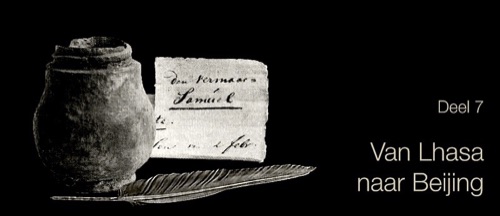 den Vermaar=
Samuel
te.
febr.
Deel 7
Van Lhasa
naar Beijing